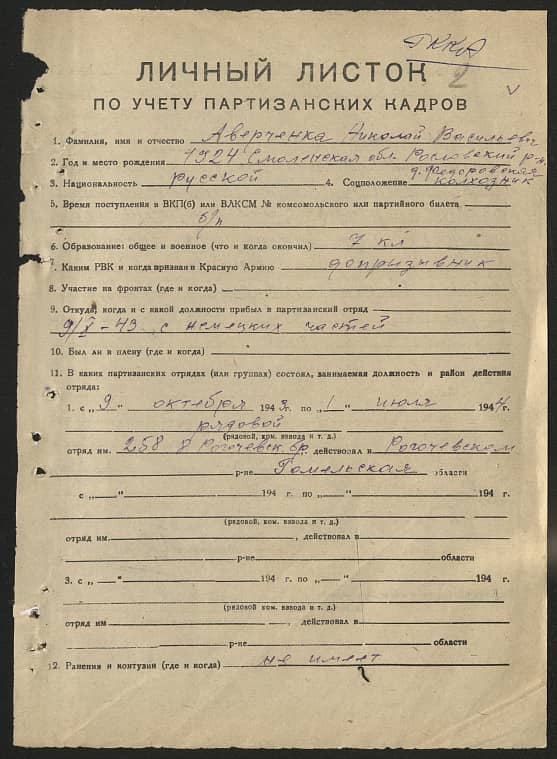 РККА
2
ЛИЧНЫЙ ЛИСТОК
ПО УЧЕТУ ПАРТИЗАНСКИХ КАДРОВ
1. Фамилия, имя и отчество Аверченка Николай Васильевич
2. Год и место рождения 1924 Смоленская обл. Рославский р-н
д. Федоровская
3. Национальность русской 4. Соцположение колхозник
5. Время поступления в ВКП(б) или ВЛКСМ № комсомольского или партийного билета
б/п
6. Образование: общее и военное (что и когда окончил) 7 кл
7. Каким РВК и когда призван в Красную Армию допризывник
8. Участие на фронтах (где и когда)
9. Откуда, когда и с какой должности прибыл в партизанский отряд
9/X-43 с немецких частей
10. Был ли в плену (где и когда)
11. В каких партизанских отрядах (или группах) состоял, занимаемая должность и район действия
отряда:
1. с „9" октября 1943 г. по „1" июля 1944 г.
рядовой
(рядовой, ком. взвода и т. д.)
отряд им. 258 8 Рогочевск. бр, действовал в Рогочевском
р-не Гомельская области
с „ " 194 г. по „ " 194 г.
(рядовой, ком. взвода и т. д.)
отряд им. , действовал в
р-не области
3. с „ " 194 г. по „ " 194 г.
(рядовой, ком. взвода и т. д.)
отряд им , действовал в
р-не области
12. Ранения и контузии (где и когда) не имеет